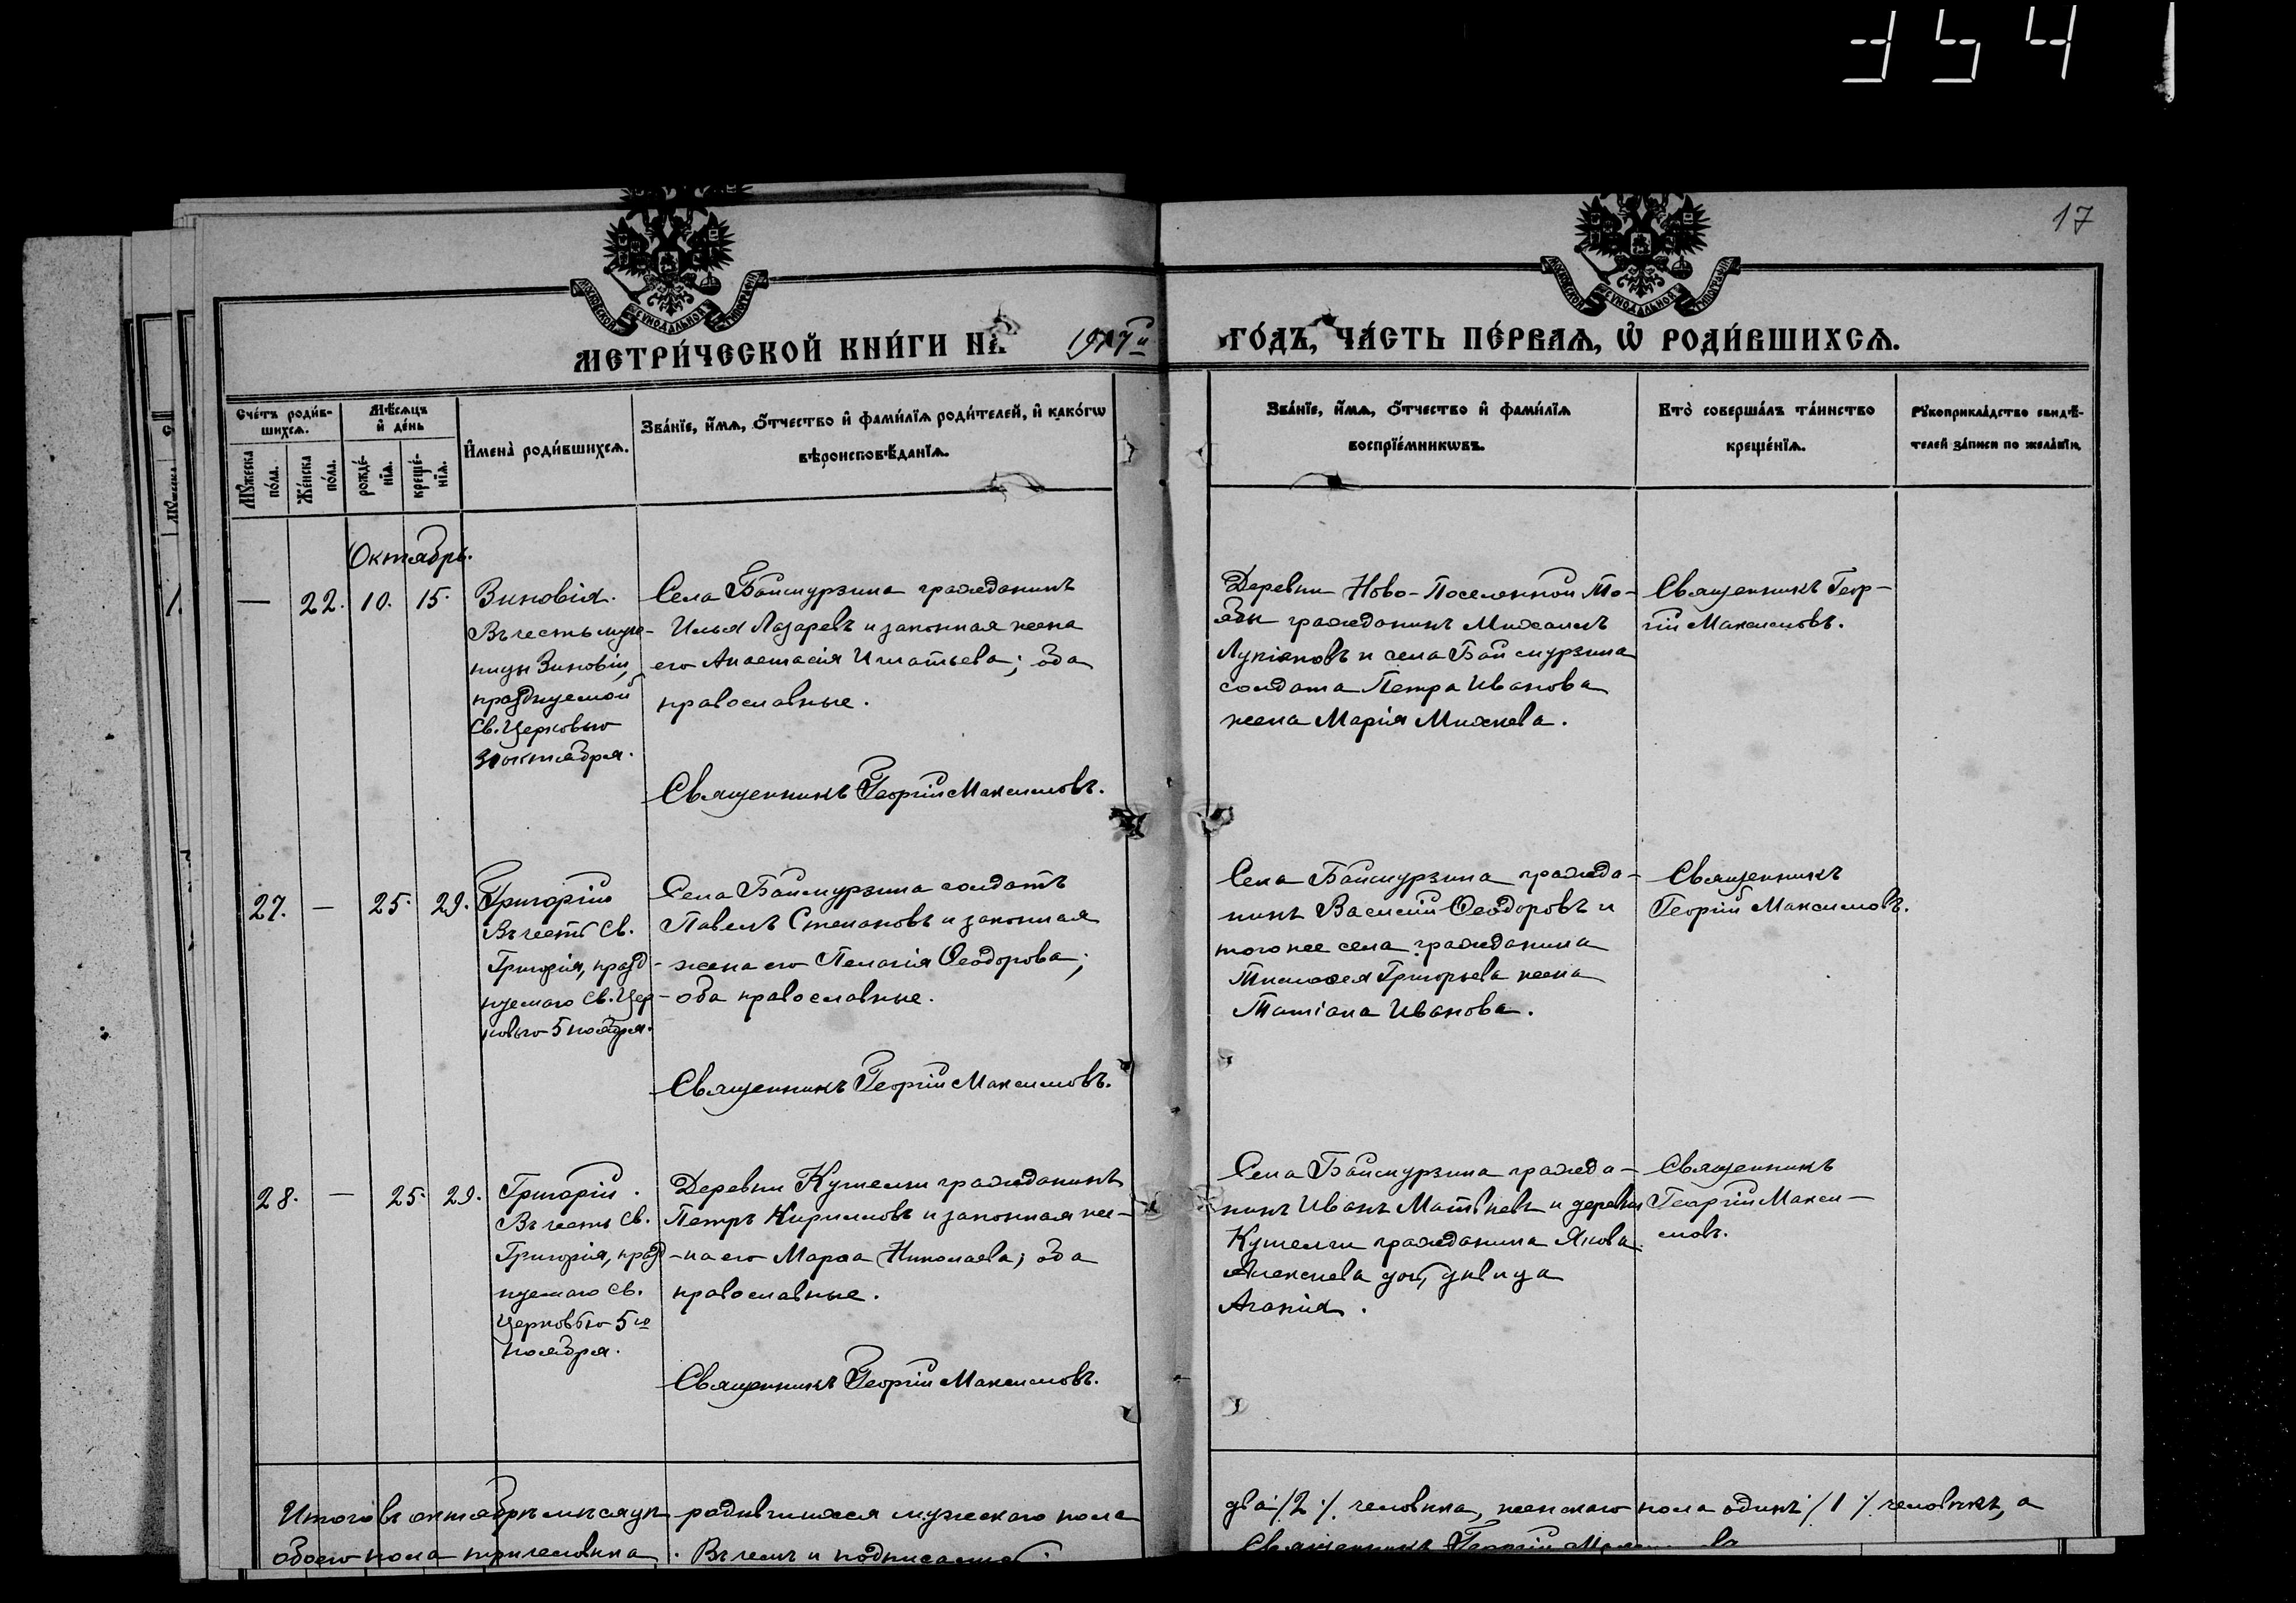 354
17
МОСКОВСКОЙ СѴНОДАЛЬНОЙ ТИПОГРАФІИ
МОСКОВСКОЙ СѴНОДАЛЬНОЙ ТИПОГРАФІИ
МЕТРИ́ЧЕСКОЙ КНИ́ГИ НА 1917й ГО́ДЪ, ЧА́СТЬ ПЕ́РВАѦ, Ѽ РОДИ́ВШИХСѦ.
Сче́тъ роди́в-
шихсѧ.
Мѣ́сѧцъ
и҆ де́нь
Мꙋ́жеска
по́ла.
Же́нска
по́ла.
рожде́-
нїѧ.
креще́-
нїѧ.
И҆мена̀ роди́вшихсѧ.
Зва́нїе, и҆́мѧ, ѻ҆́тчество и҆ фами́лїѧ роди́телей, и҆ како́гѡ
вѣроисповѣ́данїѧ.
Зва́нїе, и҆́мѧ, ѻ҆́тчество и҆ фами́лїѧ
воспрїе́мникѡвъ.
Кто̀ соверша́лъ та́инство
креще́нїѧ.
Рꙋкоприкла́дство свидѣ́-
телей за́писи по жела́нїю.
Октябрь.
— 22. 10. 15.
Зиновія.
Въ честь муче-
ницы Зиновіи,
празднуемой
Св. Церковью
31 октября.
Села Баймурзина гражданинъ
Илья Лазаревъ и законная жена
его Анастасія Игнатьева; оба
православные.
Священникъ Георгій Максимовъ.
Деревни Ново-Поселенной То-
ябы гражданинъ Михаилъ
Лукіановъ и села Баймурзина
солдата Петра Иванова
жена Марія Михеева.
Священникъ Геор-
гій Максимовъ.
27. — 25. 29.
Григорій
Въ честь Св.
Григорія, празд-
нуемаго Св. Цер-
ковью 5 ноября.
Села Баймурзина солдатъ
Павелъ Степановъ и законная
жена его Пелагія Ѳеодорова;
оба православные.
Священникъ Георгій Максимовъ.
Села Баймурзина гражда-
нинъ Василій Ѳеодоровъ и
того же села гражданина
Тимоѳея Григорьева жена
Татіана Иванова.
Священникъ
Георгій Максимовъ.
28. — 25. 29.
Григорій.
Въ честь Св.
Григорія, празд-
нуемаго Св.
Церковью 5го
ноября.
Деревни Кушелги гражданинъ
Петръ Кирилловъ и законная же-
на его Марѳа Николаева; оба
православные.
Священникъ Георгій Максимовъ.
Села Баймурзина гражда-
нинъ Иванъ Матвѣевъ и деревни
Кушелги гражданина Якова
Алексѣева дочь, дѣвица
Агапія.
Священникъ
Георгій Макси-
мовъ.
Итого въ октябрѣ мѣсяцѣ родившихся мужескаго пола два /2/ человѣка, женскаго пола одинъ /1/ человѣкъ, а
обоего пола три человѣка. Въ чемъ и подписаемся: Священникъ Георгій Максимовъ